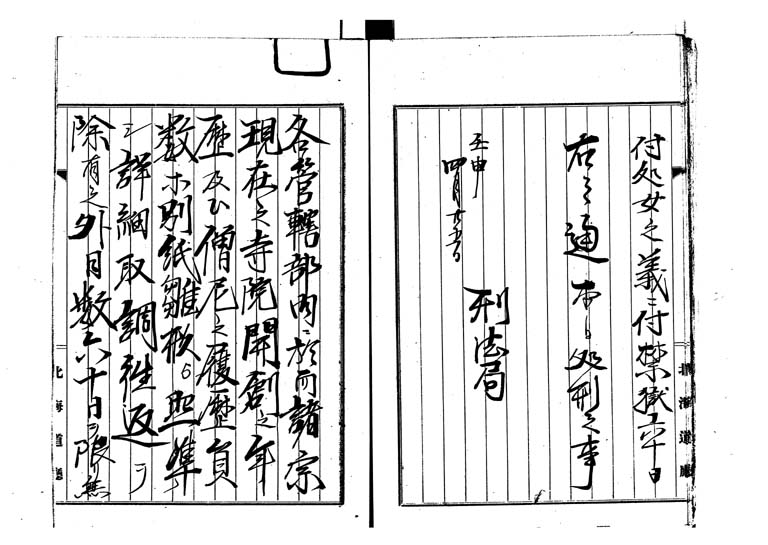 付処女之義ニ付禁獄六十日
右之通 処刑之事
壬申
四月廿五日
刑法局
北海道廳
各管轄部内ニ於而諸宗
現在之寺院開創之年
歴及ひ僧尼之履歴員
数等別紙雛形ニ照準
シ詳細取調往返ヲ
除有之外日数六十日ヲ限無
北海道廳